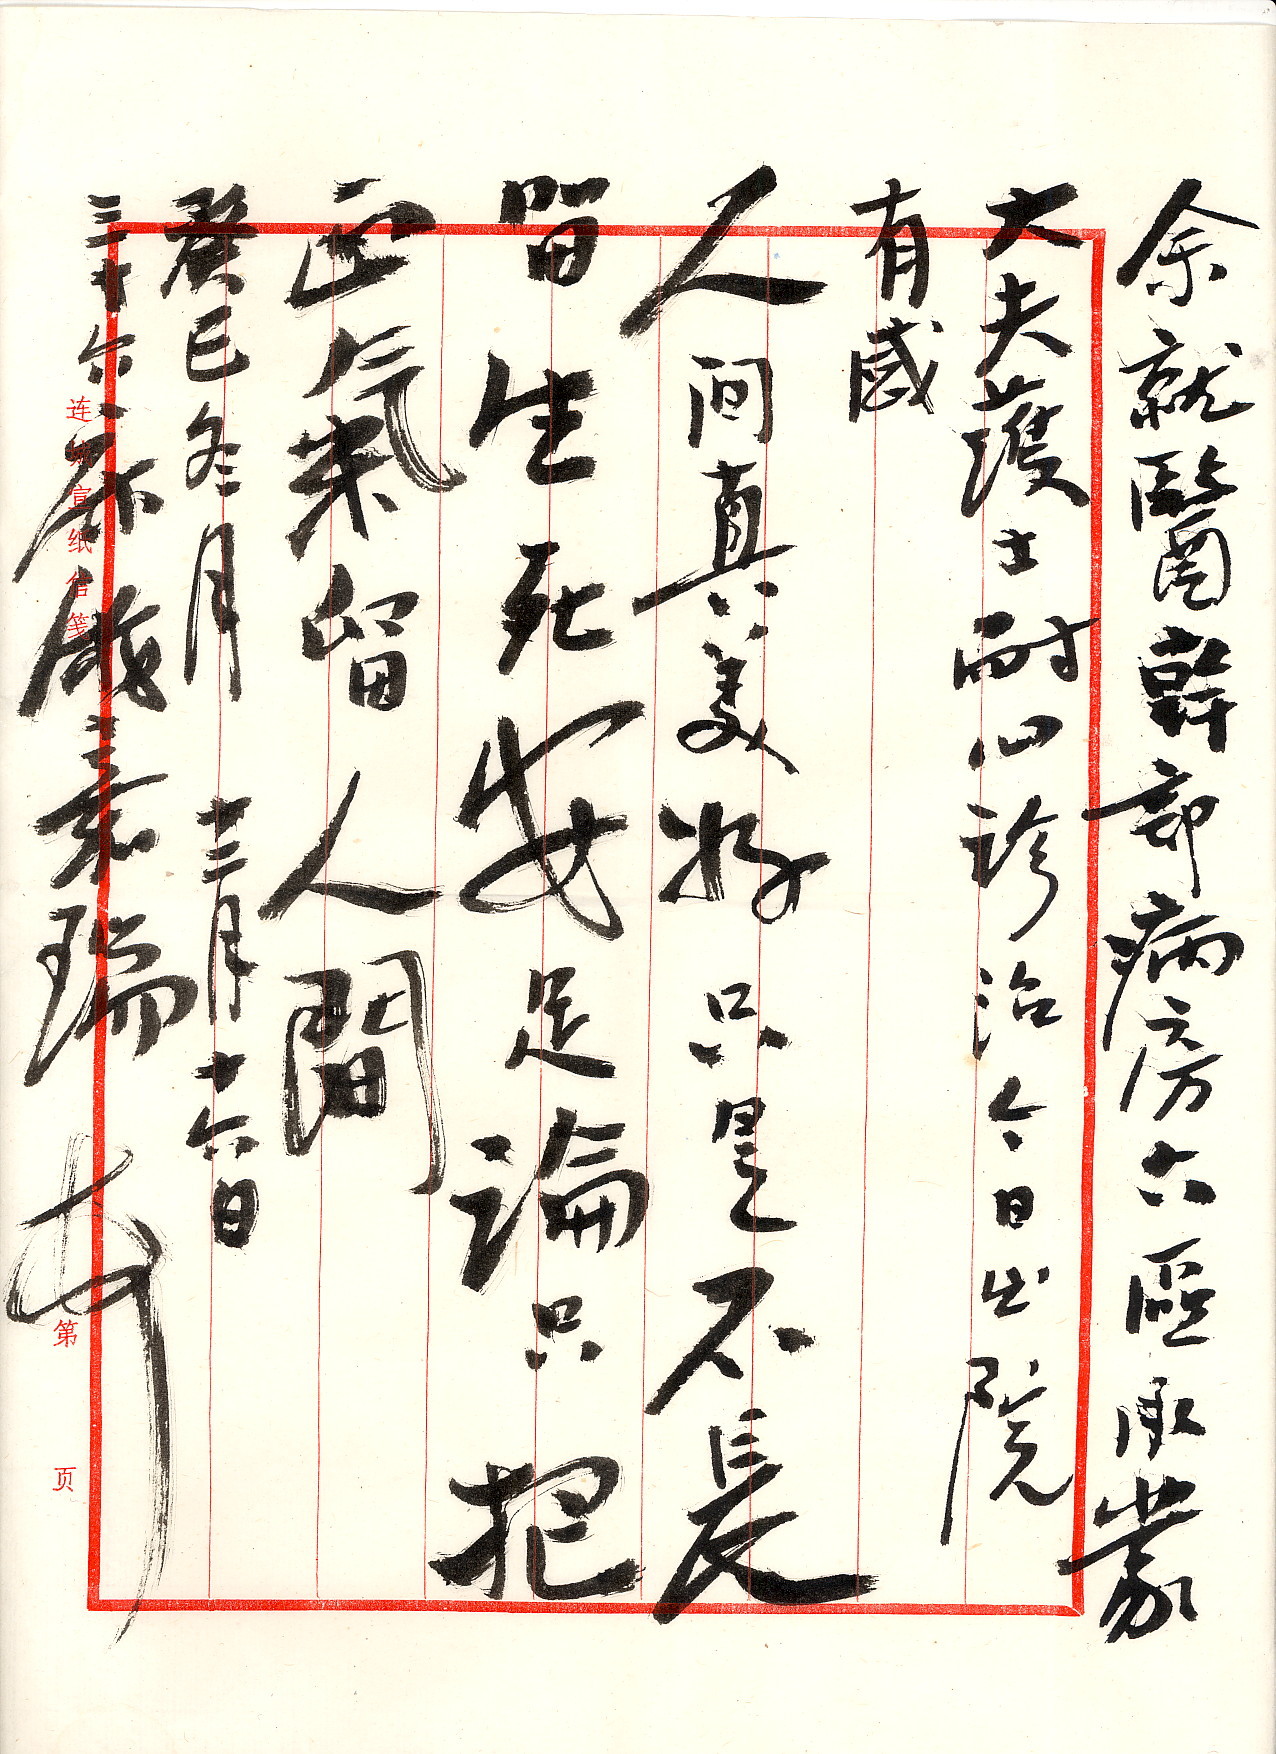 余就醫幹部病房六區承蒙
大夫護士耐心診治今日出院
有感
人间真美好只是不長
留生死安足論只把
正氣留人間
癸巳冬月十二月十六日
三十六床魏嘉瑞
连 宣纸信笺
第 页